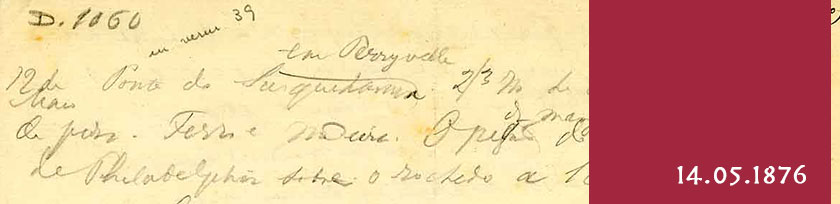 D. 1060
39
em Perryville
12 de Ponte do Susquehanna. 2/3 M de
Maio
Ferro e madeira. O
de Philadelphia sobre o rochedo a
14.05.1876